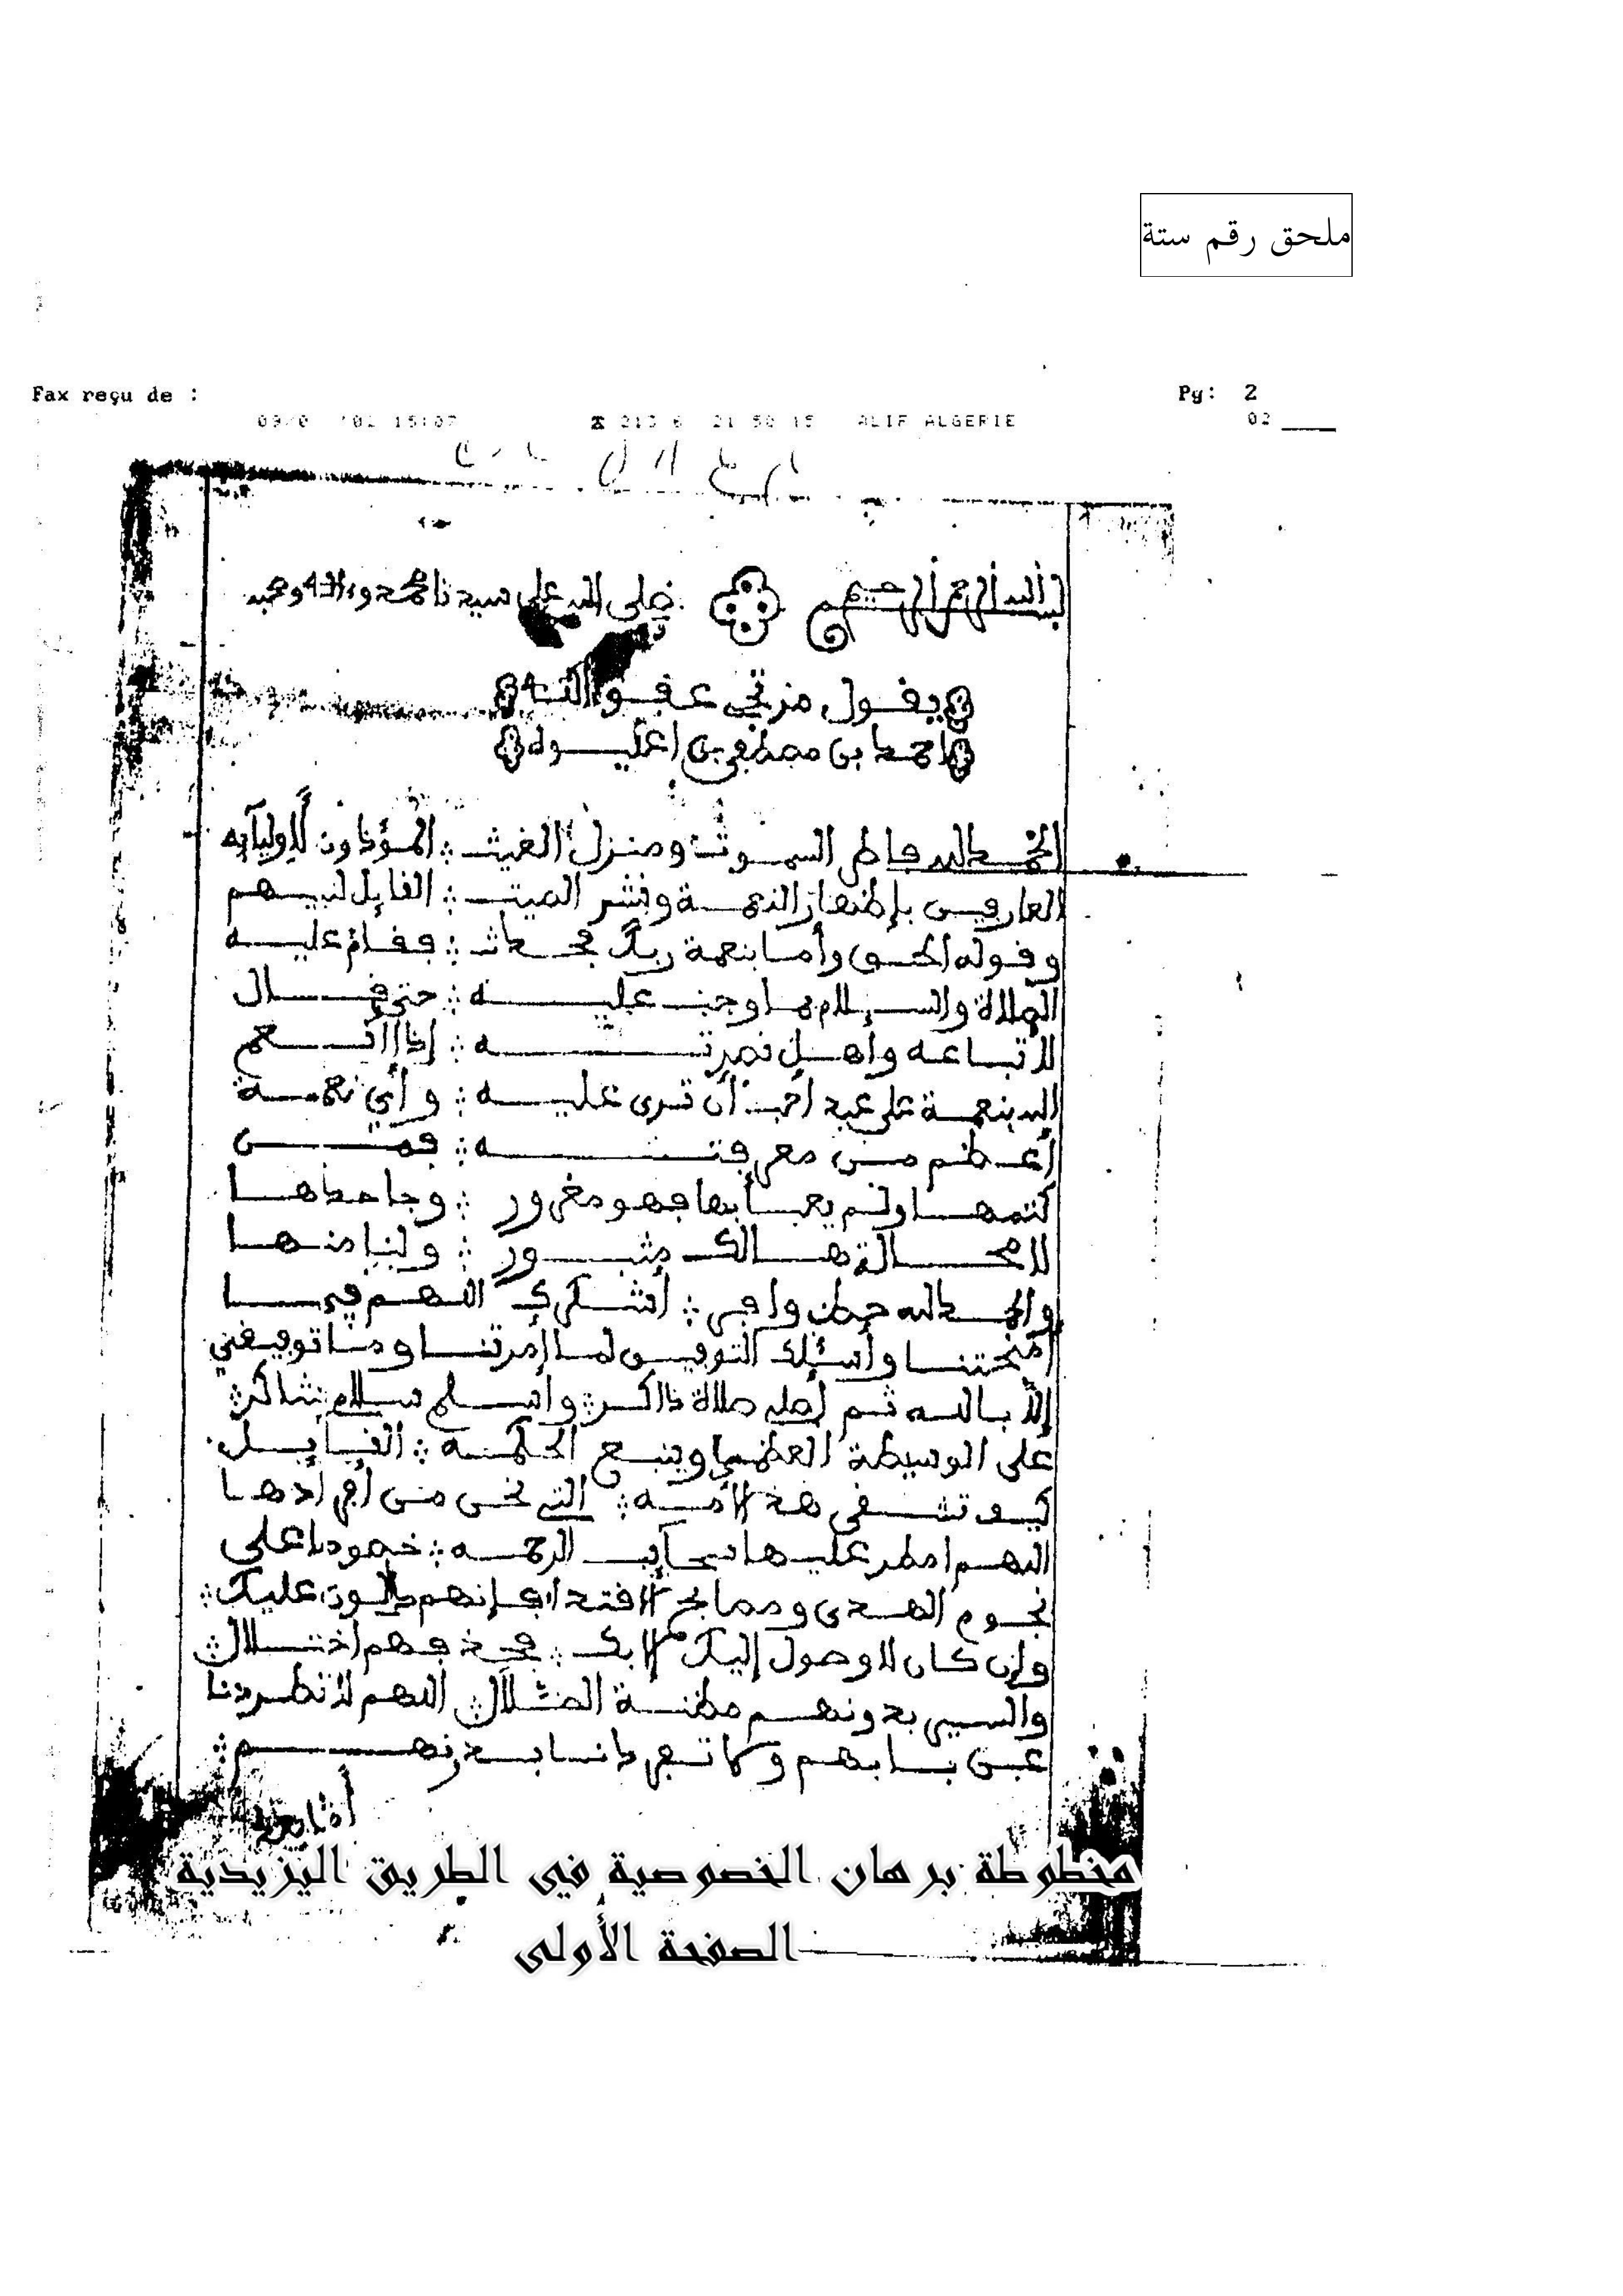 ملحق رقم ستة
Fax reçu de :
Pg: 2
15:07 ALIF ALGERIE 02
بسم الله الرحمن الرحيم صلى الله على سيدنا محمد وءاله وصحبه
يقول مرتجي عفو الله
احمد بن مصطفى بن اعليوه
الحمد لله فاطر السموت ومنزل الغيث ؞ المؤذن لأوليآئه
العارفين بإظهار النعمة ونشر الميت ؞ القايل لنبيهم
وقوله الحق وأما بنعمة ربك فحدث ؞ فقام عليه
الصلاة والسلام بما وجب عليه ؞ حتى قال
لاتباعه واهل نصرته ؞ إذا انعم
الله بنعمة على عبد أحب أن ترى عليه ؞ وأي نعمة
أعظم من معرفته ؞ فمن
كتمها ولم يعبأ بها فهو مغرور ؞ وجاحدها
لا محالة هالك مثبور ؞ ولنا منها
والحمد لله حظ وافر ؞ أشكرك اللهم فيما
منحتنا وأسئلك التوفيق لما أمرتنا وما توفيقي
إلا بالله ثم أصلي صلاة ذاكر ؞ واسلم سلام شاكر ؞
على الوسيطة العظمى وينبع الحكمه ؞ القايل
كيف تشقى هذه الأمه ؞ التي نحن من أفرادها
اللهم امطر عليها سحآيب الرحمه ؞ خصوصا على
نجوم الهدى ومصابح الاقتدا ؞ فإنهم دالون عليك ؞
وإن كان لا وصول إليك إلا بك ؞
والسير بدونهم مظنة الضلال ؞ اللهم لا تطردنا
عن بابهم
مخطوطة برهان الخصوصية في الطريق اليزيدية
الصفحة الأولى